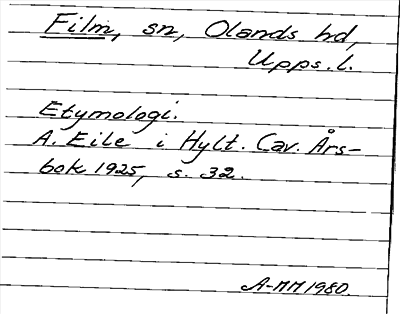 Film, sn, Olands hd,
Upps. l.
Etymologi.
A. Eile i Hylt. Cav. Års-
bok 1925, s. 32.
A-MM 1980.